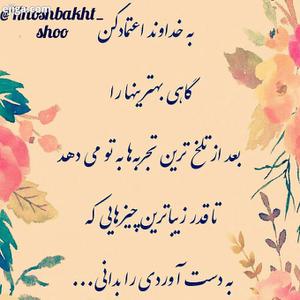 @khoshbakht_
shoo
به خداوند اعتماد کن
گاهی بهترینها را
بعد از تلخ ترین تجربه‌ها به تو می دهد
تا قدر زیباترین چیزهایی که
به دست آوردی را بدانی...